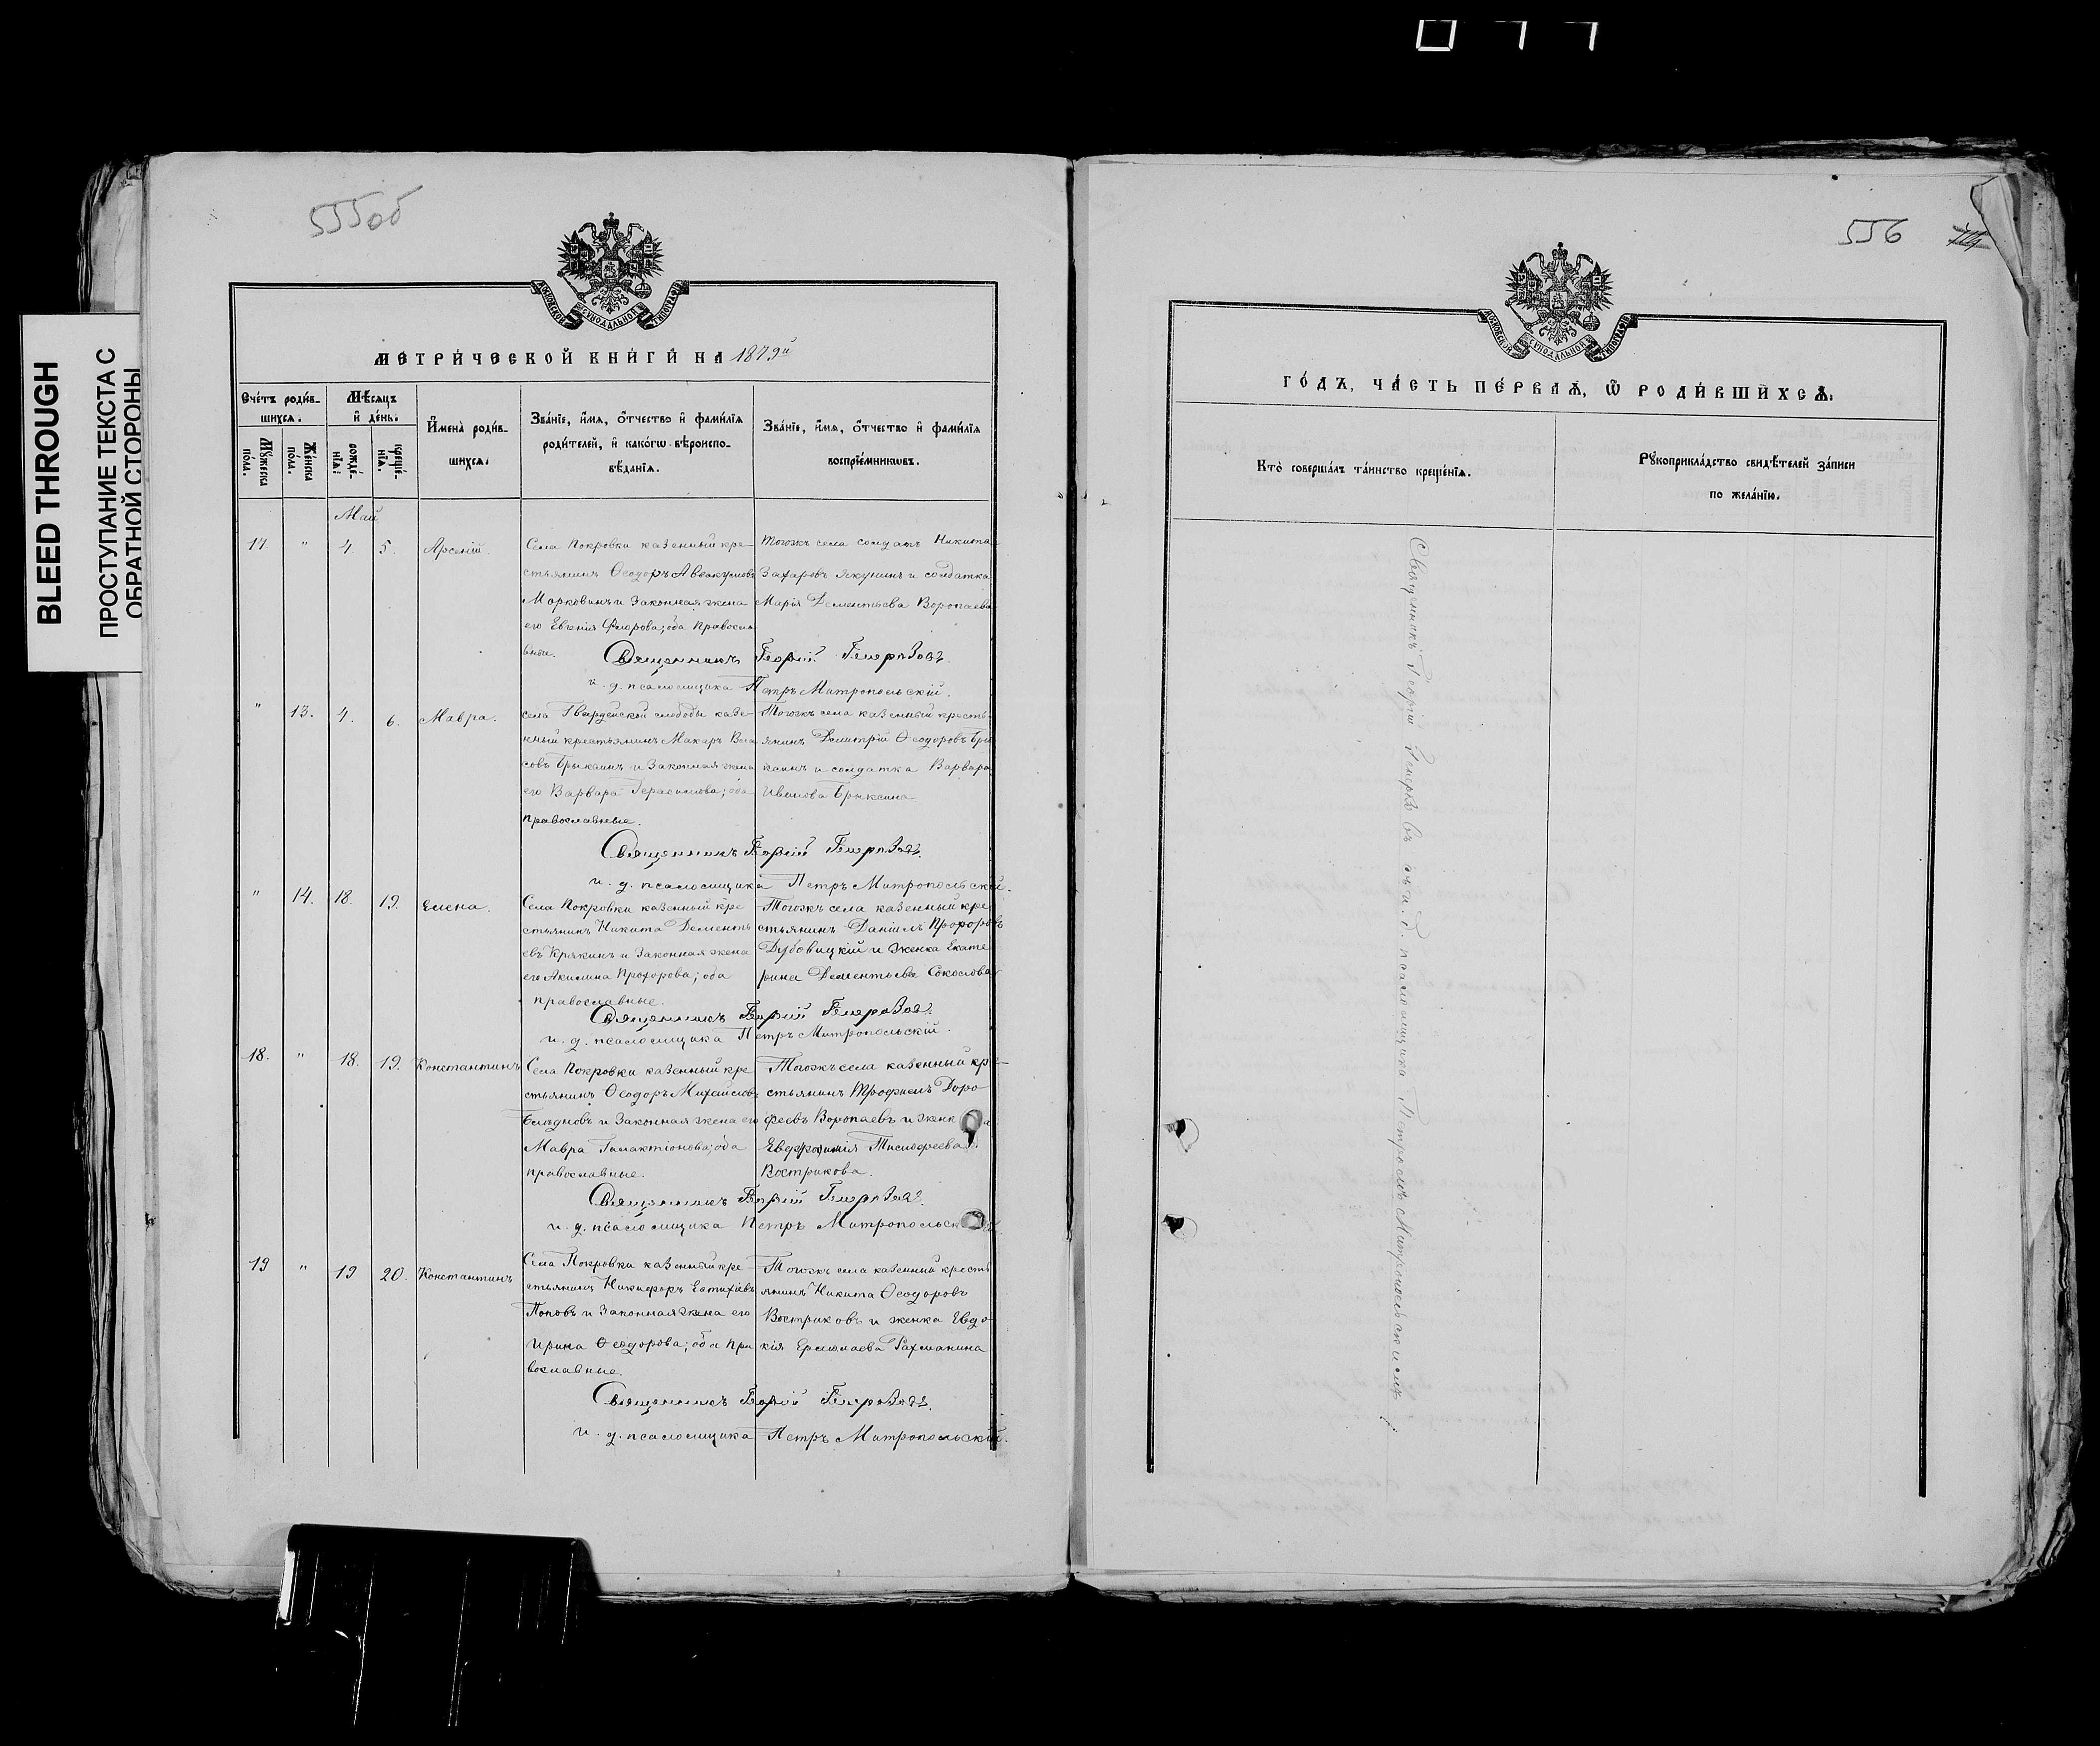 BLEED THROUGH
ПРОСТУПАНИЕ ТЕКСТА С
ОБРАТНОЙ СТОРОНЫ
555об
МОСКОВСКОЙ СѴНОДАЛЬНОЙ ТИПОГРАФІИ
МЕТРИ́ЧЕСКОЙ КНИ́ГИ НА 1879й
Сче́тъ роди́в-
шихсѧ.
Мѹжеска
пола.
Же́нска
пола.
Мѣ́сяцъ
и҆ де́нь.
рожде́-
нїѧ.
креще́-
нїѧ.
И҆мена̀ роди́в-
шихсѧ.
Зва́нїе, и҆́мѧ, ѻ҆́тчество и҆ фами́лїѧ
роди́телей, и҆ како́гѡ вѣроиспо-
вѣ́данїѧ.
Зва́нїе, и҆́мѧ, ѻ҆́тчество и҆ фами́лїѧ
воспрїе́мникѡвъ.
Май
17. " 4. 5. Арсеній.
Села Покровки казенный кре-
стьянинъ Ѳеодоръ Аввакумовъ
Морковинъ и законная жена
его Евгенія Флорова; оба православ-
вные.
Тогожъ села солдатъ Никита
Захаровъ и солдатка
Марія Дементьева Воропаева
Священникъ Георгій Генерозовъ.
и. д. псаломщика Петръ Митропольскій.
" 13. 4. 6. Мавра.
села Гвардейской слободы казе-
нный крестьянинъ Макаръ Вла
совъ Брыксинъ и законная жена
его Варвара Герасимова; оба
православные.
Тогожъ села казенный кресть-
янинъ Димитрій Ѳеодоровъ Бры
ксинъ и солдатка Варвара
Иванова Брыксина
Священникъ Георгій Генерозовъ.
и. д. псаломщика Петръ Митропольскій.
" 14. 18. 19. Елена.
Села Покровки казенный кре
стьянинъ Никита Дементь
евъ Крякинъ и законная жена
его Акилина Прохорова; оба
православные.
Тогожъ села казенный кре
стьянинъ Даніилъ Прохоровъ
Дубовицкій и женка Екате
рина Дементьева Соколова
Священникъ Георгій Генерозовъ.
и. д. псаломщика Петръ Митропольскій.
18. " 18. 19. Константинъ
Села Покровки казенный кре
стьянинъ Ѳеодоръ Михайловъ
Блѣдновъ и законная жена его
Мавра Галактіонова; оба
православные.
Тогожъ села казенный кре-
стьянинъ Трофимъ Доро
феевъ Воропаевъ и женка
Евфросинія Тимофеева
Вострикова.
Священникъ Георгій Генерозовъ.
и. д. псаломщика Петръ Митропольскій
19 " 19 20. Константинъ
Села Покровки казенный кре
стьянинъ Никифоръ Евтихіевъ
Поповъ и законная жена его
Ирина Ѳеодорова; оба пра
вославные.
Тогожъ села казенный кресть
янинъ Никита Ѳеодоровъ
Востриковъ и женка Евдо
кія Ермолаева Рахманина
Священникъ Георгій Генерозовъ.
и. д. псаломщика Петръ Митропольскій.
556
МОСКОВСКОЙ СѴНОДАЛЬНОЙ ТИПОГРАФІИ
ГО́ДЪ, ЧА́СТЬ ПЕ́РВАѦ, Ѡ҆ РОДИ́ВШИХСѦ.
Кто̀ соверша́лъ та́инство креще́нїѧ.
Рꙋкоприкла́дство свидѣ́телей за́писи
по жела́нїю.
Священникъ Георгій Генерозовъ съ и. д. псаломщика Петромъ Митропольскимъ